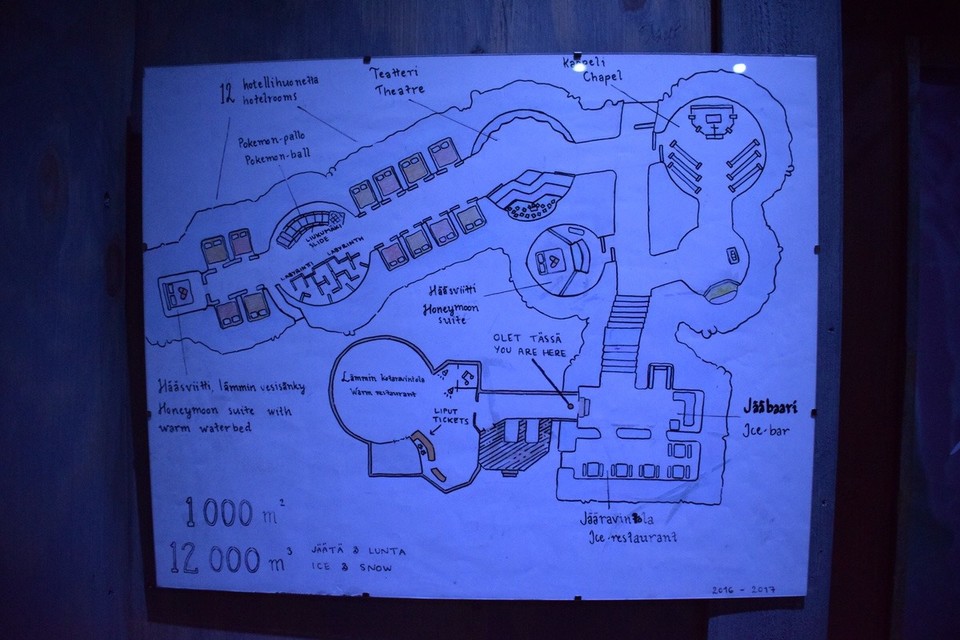 12 hotellihuonetta
hotelrooms
Teatteri
Theatre
Kappeli
Chapel
Pokemon-pallo
Pokemon-ball
LIUKUMÄKI
SLIDE
LABYRINTTI
LABYRINTH
Hääsviitti
Honeymoon
suite
OLET TÄSSÄ
YOU ARE HERE
Lämmin kotaravintola
Warm restaurant
LIPUT
TICKETS
Hääsviitti, lämmin vesisänky
Honeymoon suite with
warm waterbed
Jääbaari
Ice-bar
Jääravintola
Ice-restaurant
1000 m²
12 000 m³
JÄÄTÄ & LUNTA
ICE & SNOW
2016 - 2017